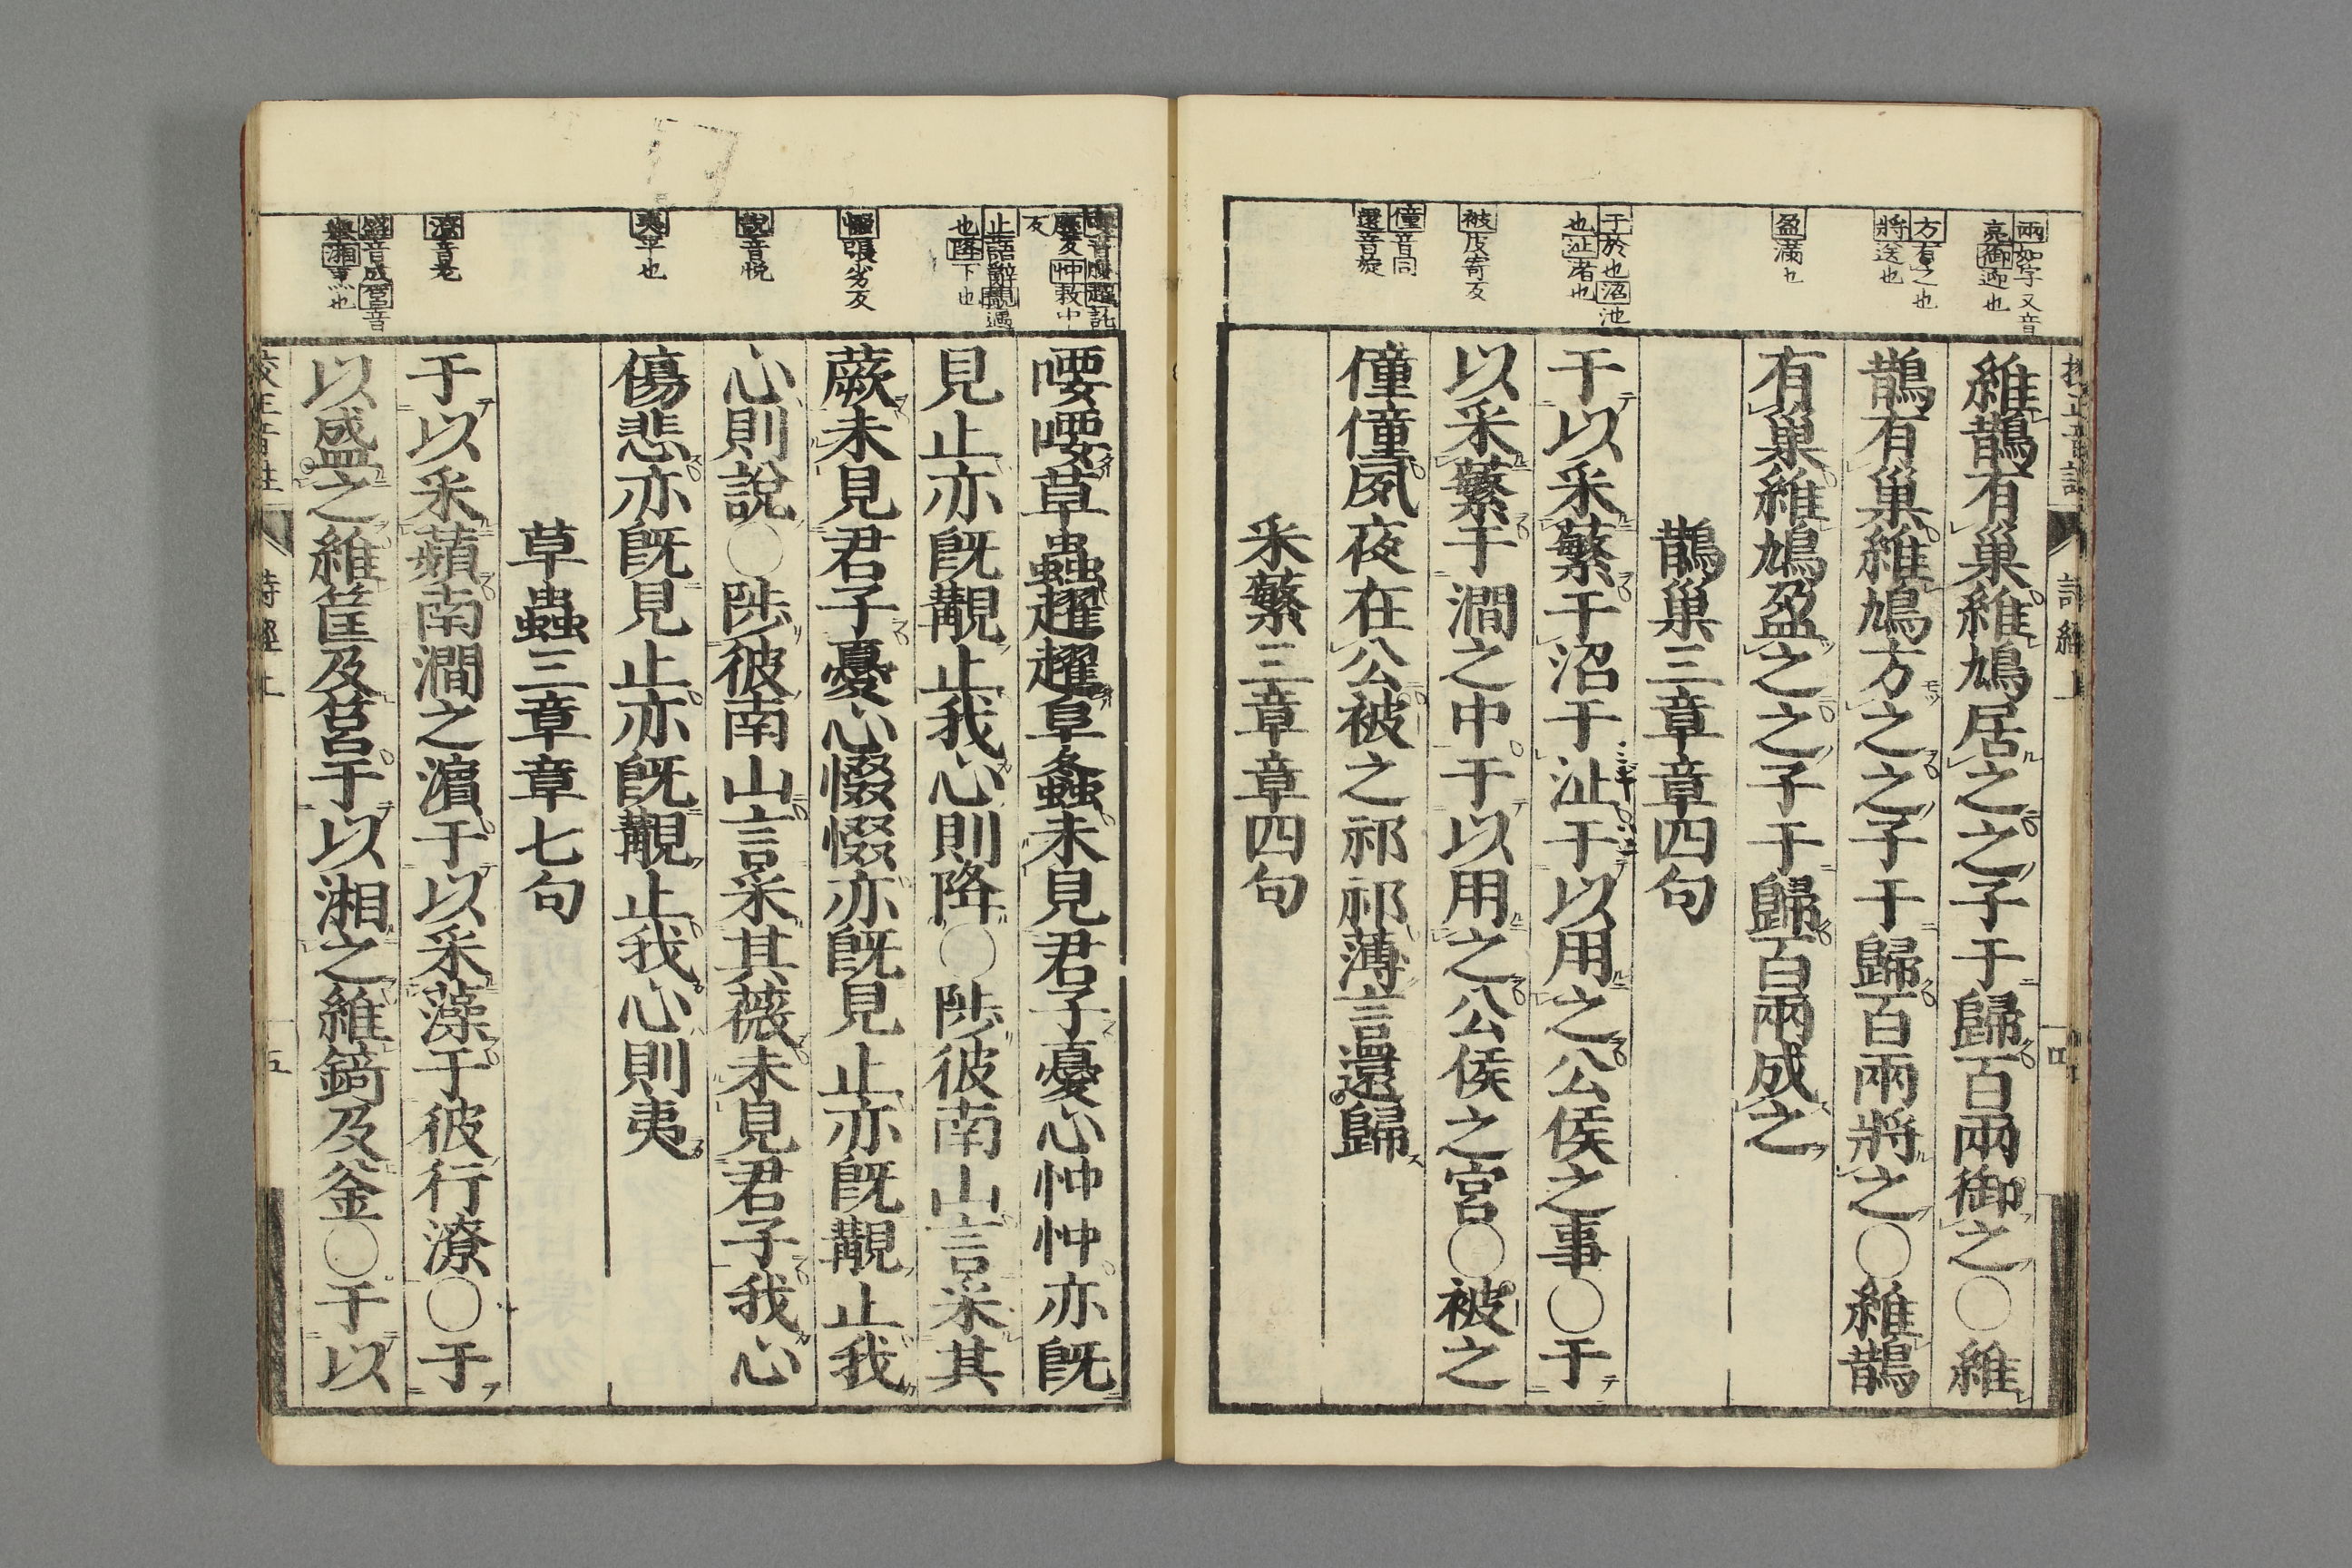 兩如字又音
亮御迎也
方有之也
將送也
盈滿也
于於也沼池
也沚渚也
被皮寄反
僮音同
還音旋
維鵲有巢維鳩居之之子于歸百兩御之○維
鵲有巢維鳩方之之子于歸百兩將之○維鵲
有巢維鳩盈之之子于歸百兩成之
鵲巢三章章四句
于以采蘩于沼于沚于以用之公侯之事○于
以采蘩于澗之中于以用之公侯之宮○被之
僮僮夙夜在公被之祁祁薄言還歸
采蘩三章章四句
止語辭覯遇
也降下也
惙張劣反
說音悅
夷平也
潦音老
盛音成筥音
喓喓草蟲趯趯阜螽未見君子憂心忡忡亦既
見止亦既覯止我心則降○陟彼南山言采其
蕨未見君子憂心惙惙亦既見止亦既覯止我
心則說○陟彼南山言采其薇未見君子我心
傷悲亦既見止亦既覯止我心則夷
草蟲三章章七句
于以采蘋南澗之濵于以采藻于彼行潦○于
以盛之維筐及筥于以湘之維錡及釜○于以
五